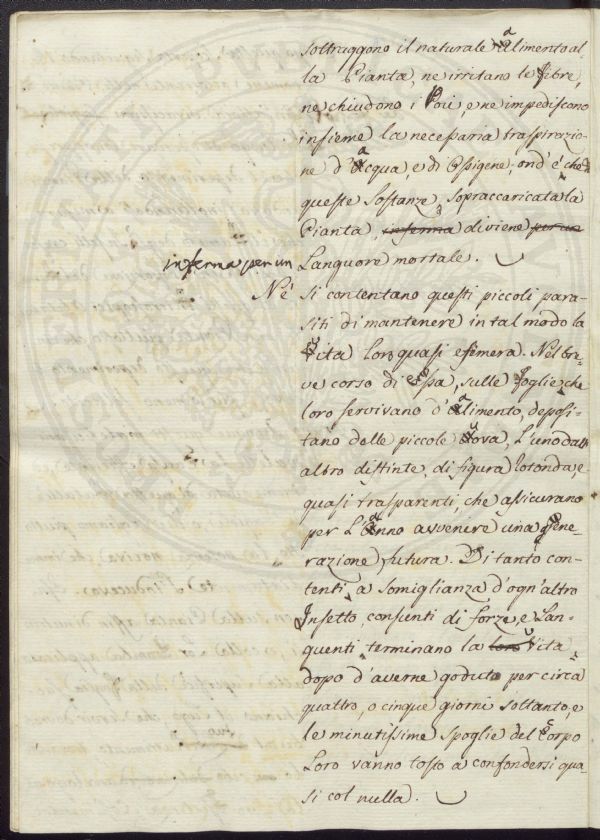 sottraggono il naturale alimento al-
la Pianta, ne irritano le fibre,
ne chiudono i Pori, e ne impediscono
insieme la necessaria traspirazio-
ne d'acqua e di Ossigene; ond'è che
queste Sostanze, sopraccaricata la
Pianta, inferma diviene per un
inferma per un
Languore mortale.
Nè si contentano questi piccoli para-
siti di mantenere in tal modo la
vita loro quasi efimera. Nel bre-
ve corso di essa, sulle foglie che
loro servivano d'alimento, deposi-
tano delle piccole uova, L'uno dall'
altro distinte, di figura rotonda, e
quasi trasparenti, che assicurano
per L'anno avvenire una gene-
razione futura. Di tanto con-
tenti, a somiglianza d'ogn'altro
Insetto, consunti di forze, e Lan-
quenti terminano la loro vita
dopo d'averne goduto per circa
quattro, o cinque giorni soltanto, e
le minutissime spoglie del corpo
Loro vanno tosto a confondersi qua-
si col nulla.